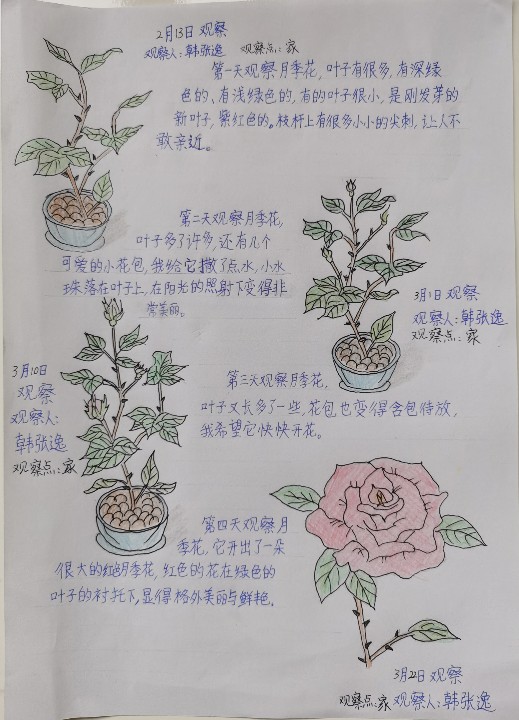 2月13日 观察
观察人：韩张逸 观察点：家
第一天观察月季花，叶子有很多，有深绿
色的、有浅绿色的，有的叶子很小，是刚发芽的
新叶子，紫红色的。枝杆上有很多小小的尖刺，让人不
敢亲近。
第二天观察月季花，
叶子多了许多，还有几个
可爱的小花包，我给它撒了点水，小水
珠落在叶子上，在阳光的照射下变得非
常美丽。
3月1日 观察
观察人：韩张逸
观察点：家
3月10日
观察
观察人：
韩张逸
观察点：家
第三天观察月季花，
叶子又长多了一些，花包也变得含包待放，
我希望它快快开花。
第四天观察月
季花，它开出了一朵
很大的红色月季花，红色的花在绿色的
叶子的衬托下，显得格外美丽与鲜艳。
3月22日 观察
观察点：家 观察人：韩张逸